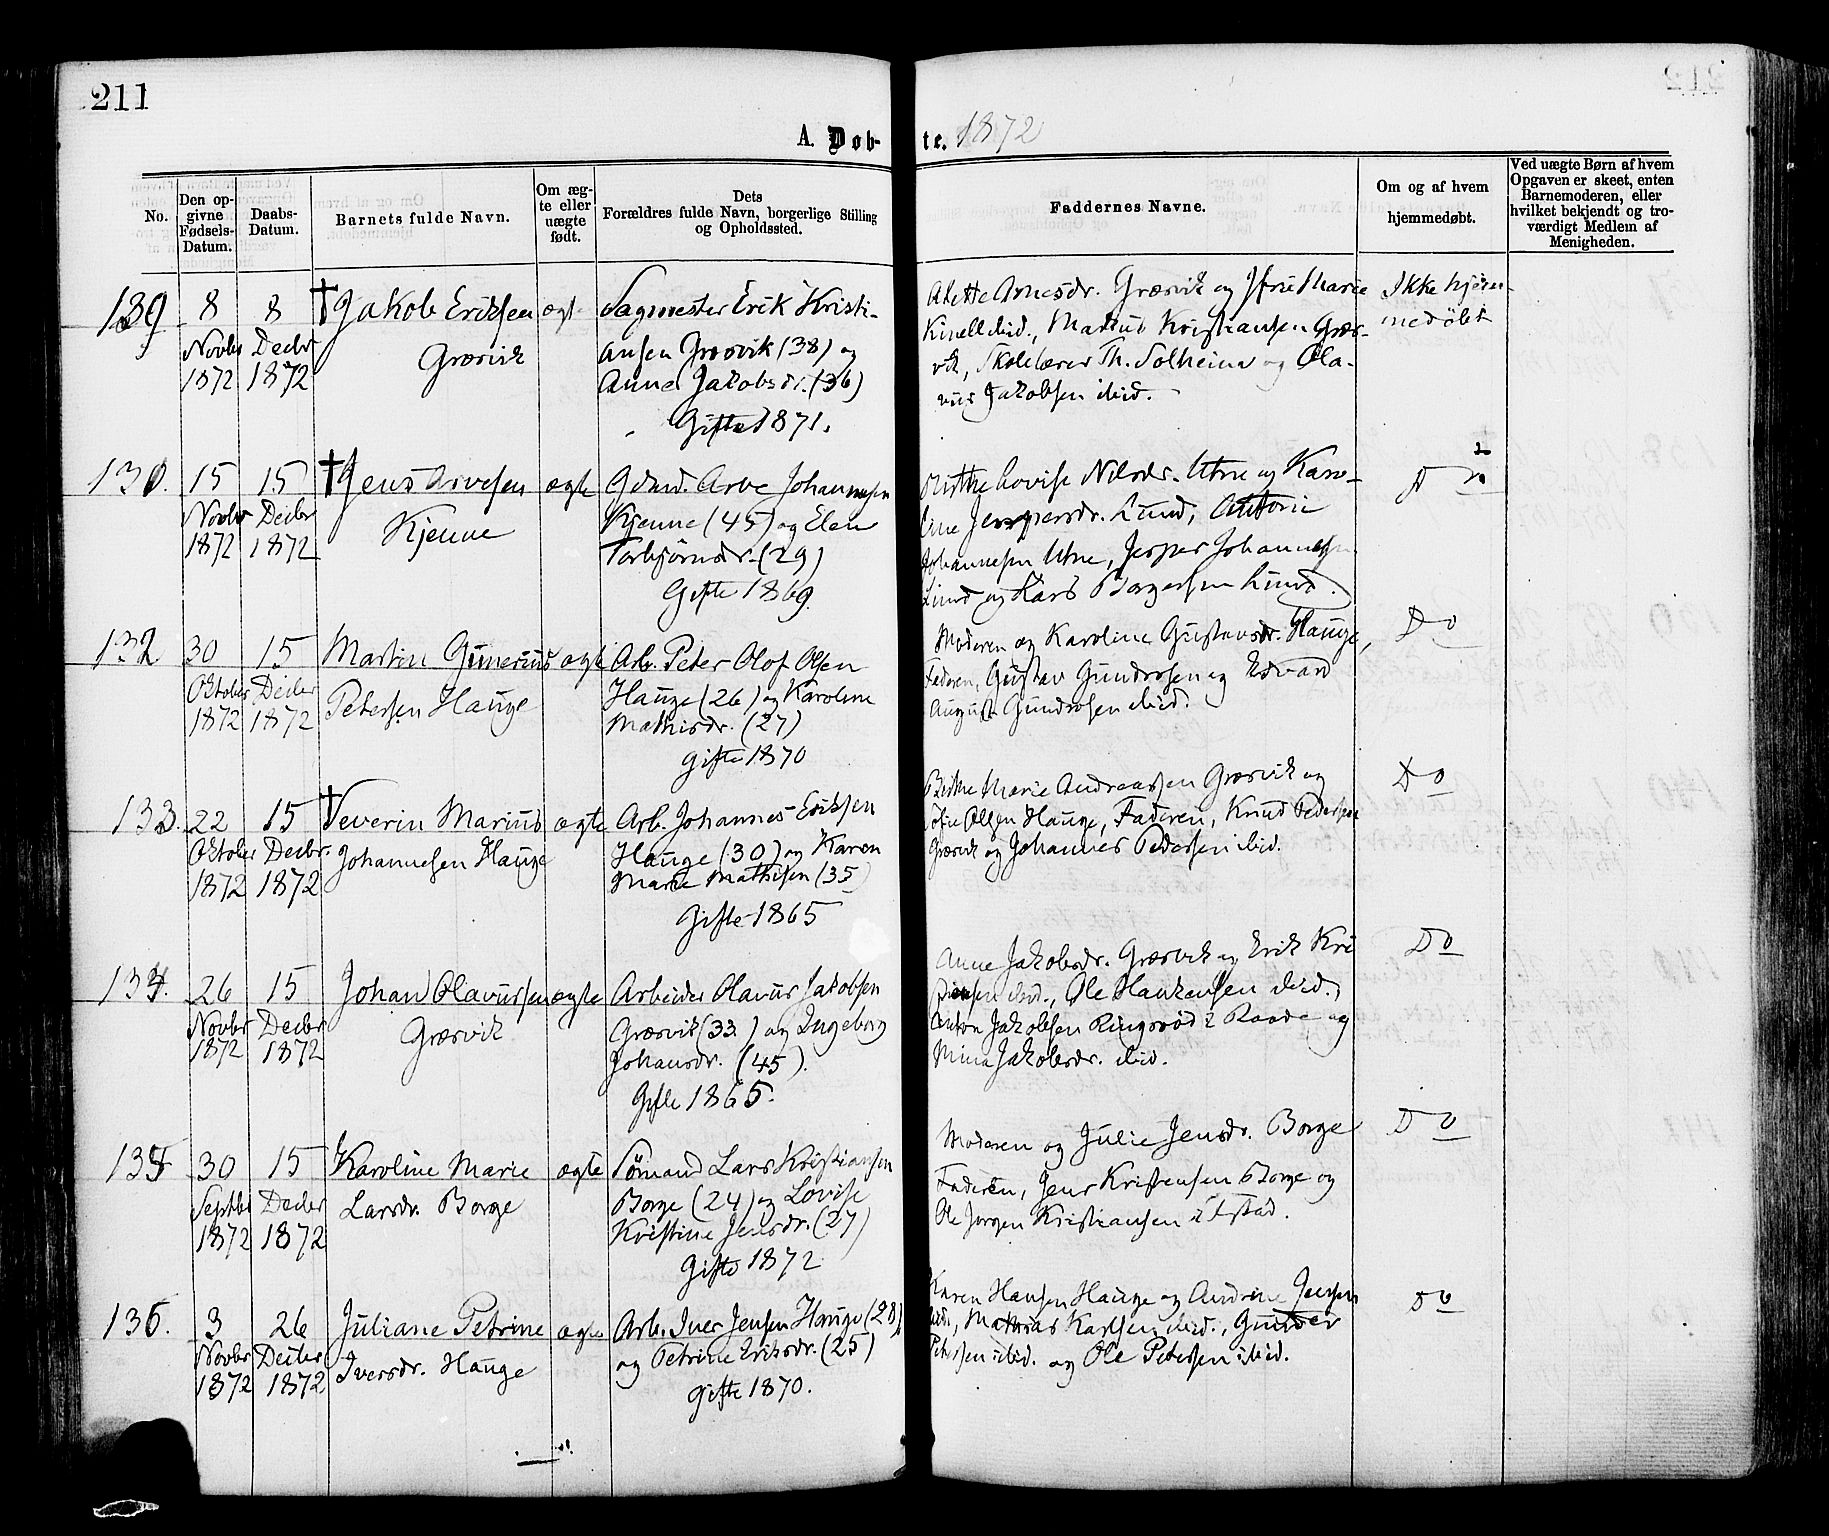 211
A. Døb-
te. 1872
No.
Den op-
givne
Fødsels-
Datum.
Daabs-
Datum.
Barnets fulde Navn.
Om æg-
te eller
uægte
født.
Dets
Forældres fulde Navn, borgerlige Stilling
og Opholdssted.
Faddernes Navne.
Om og af hvem
hjemmedøbt.
Ved uægte Børn af hvem
Opgaven er skeet, enten
Barnemoderen, eller
hvilket bekjendt og tro-
værdigt Medlem af
Menigheden.
8
Novbr
1872
8
Decbr
1872
† Jakob Eriksen
Græsvik
ægt.
Sagmester Erik Kristi-
ansen Græsvik (38) og
Anne Jakobsdr. (36)
Gifte 1871.
Arnesdr. Græsvik og Jfru Marie
Kinell ibid., Markus Kristiansen Græs-
vik, Skolelærer Th. Solheim og Ola-
vus Jakobsen ibid.
Ikke hjem-
medøbt
130.
15
Novbr
1872
15
Decbr
1872
† Jens Arvesen
Kjenne
ægte
Gdmd. Arve Johannesen
Kjenne (45) og Elen
Torbjørnsdr. (29)
Gifte 1869.
Lovise Nilsdr. Utne og Karo-
line Jespersdr. Lund, Anton
Johannesen Utne, Jesper Johannesen
Lund og Lars Borgersen Lund.
132
30
Oktober
1872
15
Decbr
1872
Martin Gunerius
Petersen Hauge
ægte
Arb. Peter Olof Olsen
Hauge (26) og Karoline
Mathisdr. (27)
gifte 1870
Moderen og Karoline Gustavsdr. Hauge,
Faderen, Gustav Gundrosen og Edvard
August Gundrosen ibid.
Do
133.
22
Oktober
1872
15
Decbr.
1872
† Severin Marius
Johannesen Hauge
ægte
Arb. Johannes Eriksen
Hauge (30) og Karen
Marie Mathisen (35)
Gifte 1865
Berthe Marie Andreassen Græsvik og
Olsen Hauge, Faderen, Knud Pedersen
Græsvik og Johannes Pedersen ibid.
Do
134.
26
Novbr
1872
15
Decbr
1872
Johan Olavussen
Græsvik
ægte
Arbeider Olavus Jakobsen
Græsvik (33) og Ingeborg
Johansdr. (45).
Gifte 1865.
Anne Jakobsdr. Græsvik og Erik Kri
ibid., Ole Haukansen ibid.,
Anton Jakobsen Ringsrød i Raade og
Mina Jakobsdr. ibid.
Do
135
30
Septbr
1872
15
Decbr
1872
Karoline Marie
Larsdr. Borge
ægte
Sømand Lars Kristiansen
Borge (24) og Lovise
Kristine Jensdr. (27)
Gifte 1872
Moderen og Julie Jensdr. Borge
Faderen, Jens Kristensen Borge og
Ole Jørgen Kristiansen i
Do
136.
3
Novbr
1872
26
Decbr
1872
Juliane Petrine
Iversdr. Hauge
ægte
Arb. Iver Jensen Hauge (28)
og Petrine Eriksdr. (25)
gifte 1870.
Karen Hansen Hauge og Andrine Jensen
ibid., Mathias Karlsen ibid., Gunder
Petersen ibid. og Ole Petersen ibid.
Do